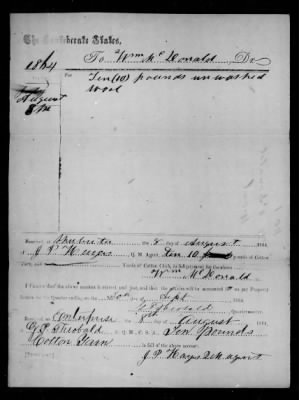 The Confederate States,
1864 To Wm McDonald, Dr
August
8th For Ten (10) pounds unwashed
wool
Received at Shubuta the 8 day of August 1864,
of J P Hayes Q. M. Agent, Ten 10 Pounds of Cotton
Yarn, and Yards of Cotton Cloth, in full payment for the above.
Wm McDonald
I certify that the above account is correct and just; and that the articles will be accounted for on my Property
Return for the Quarter ending on the 30th Sept
Theobald
Quartermaster.
Received at Enterprise 8th day of August 1864,
of G P Theobald Q. M., C. S. A., Ten Pounds
Cotton Yarn in full of the above account.
J P Hayes Q M Agent